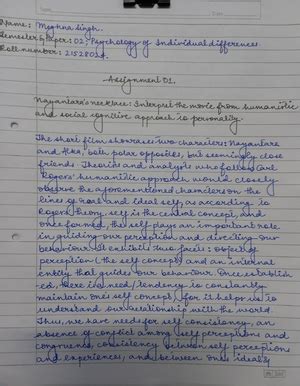 Name: Meghna Singh.
Semester & Paper: 02; Psychology of Individual differences.
Roll number: 2152802
Assignment 01.
Nayantara's necklace: Interpret the movie from humanistic
and social cognitive approach to personality.
The short film showcases two characters; Nayantara
and Alka, both polar opposites, but seemingly close
friends. Theorist and analysts who follow Carl
Rogers' humanistic approach would closely
observe the aforementioned characters on the
lines of real and ideal self, as according to
Rogers theory, self is the central concept, and
once formed, the self plays an important role
in guiding our perception and directing our
behaviour. It exhibits two faces: object of
perception (the self concept) and an internal
entity that guides our behaviour. Once establish
ed, there is need/tendency to constantly
maintain ones self concept, for it helps us to
understand our relationship with the world.
Thus, we have needs for self consistency, an
absence of conflict among self perceptions and
congruence, consistency between self perceptions
and experiences, and between ones ideally